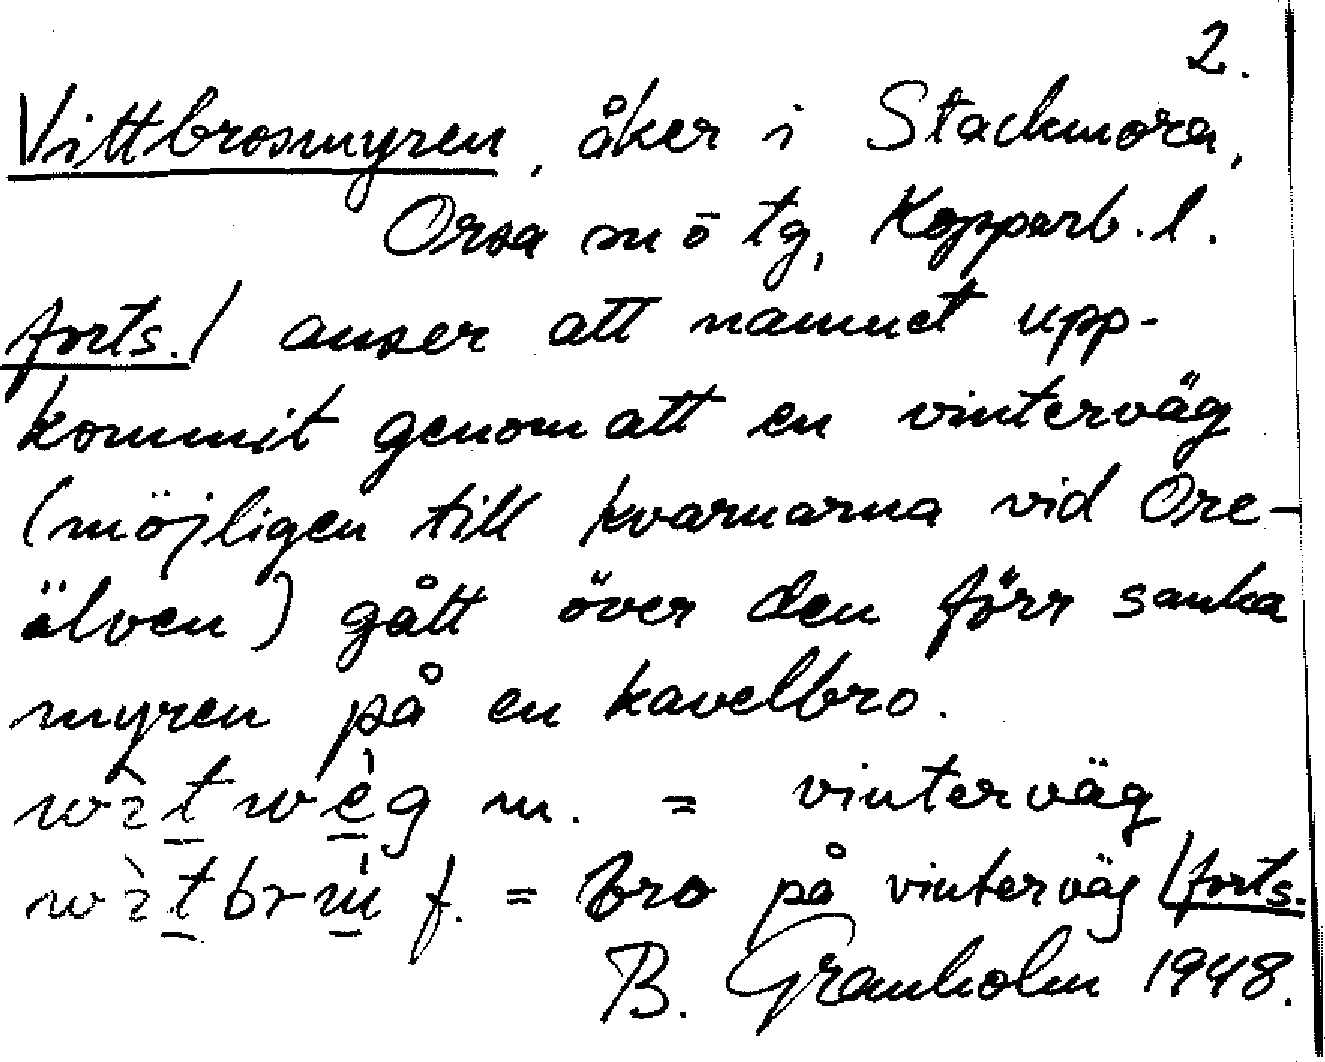 2.
Vittbrosmyren, åker i Stackmora,
Orsa sn ö tg, Kopparb. l.
forts./ anser att namnet upp-
kommit genom att en vinterväg
(möjligen till kvarnarna vid Ore-
älven) gått över den förr sanka
myren på en kavelbro.
m. = vinterväg
f. = bro på vinterväg /forts.
B. Granholm 1948.